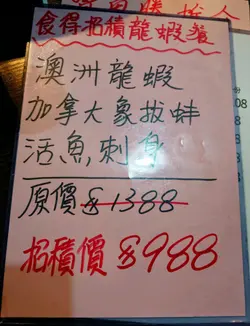 食得招積龍蝦餐
澳洲龍蝦
加拿大象拔蚌
活魚刺身
原價$1388
招積價$988
08
8